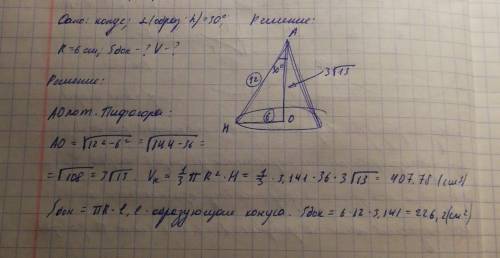 Дано: конус; ∠(образ. h)=30° Решение:
R=6 см, Sбок-? V-?
Решение:
A
12
30°
3√13
H
6
O
AO по т. Пифагора:
AO = √12²-6² = √144-36 =
= √108 = 3√13 Vк = 1/3 πR²·H = 1/3 · 3,141·36·3√13 = 407.78 (см3)
Sбок = πR·l, l - образующая конуса. Sбок = 6·12·3,141 = 226,2 (см²)